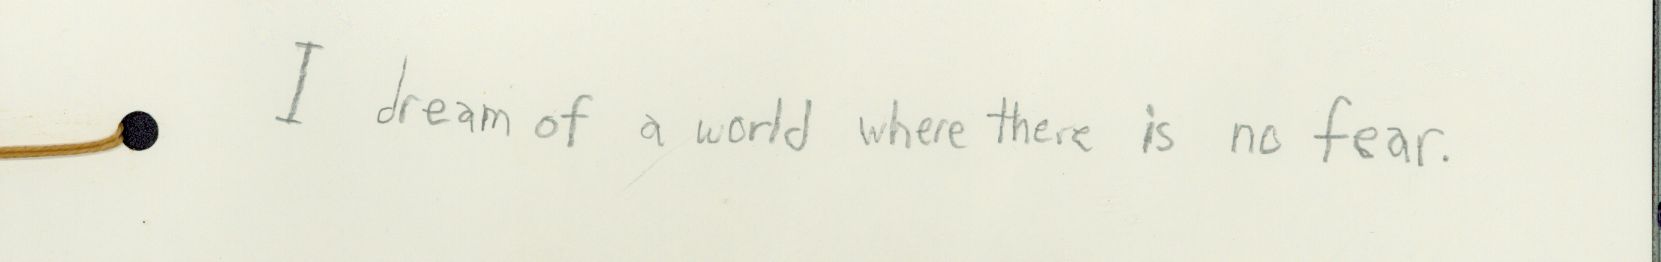 I dream of a world where there is no fear.